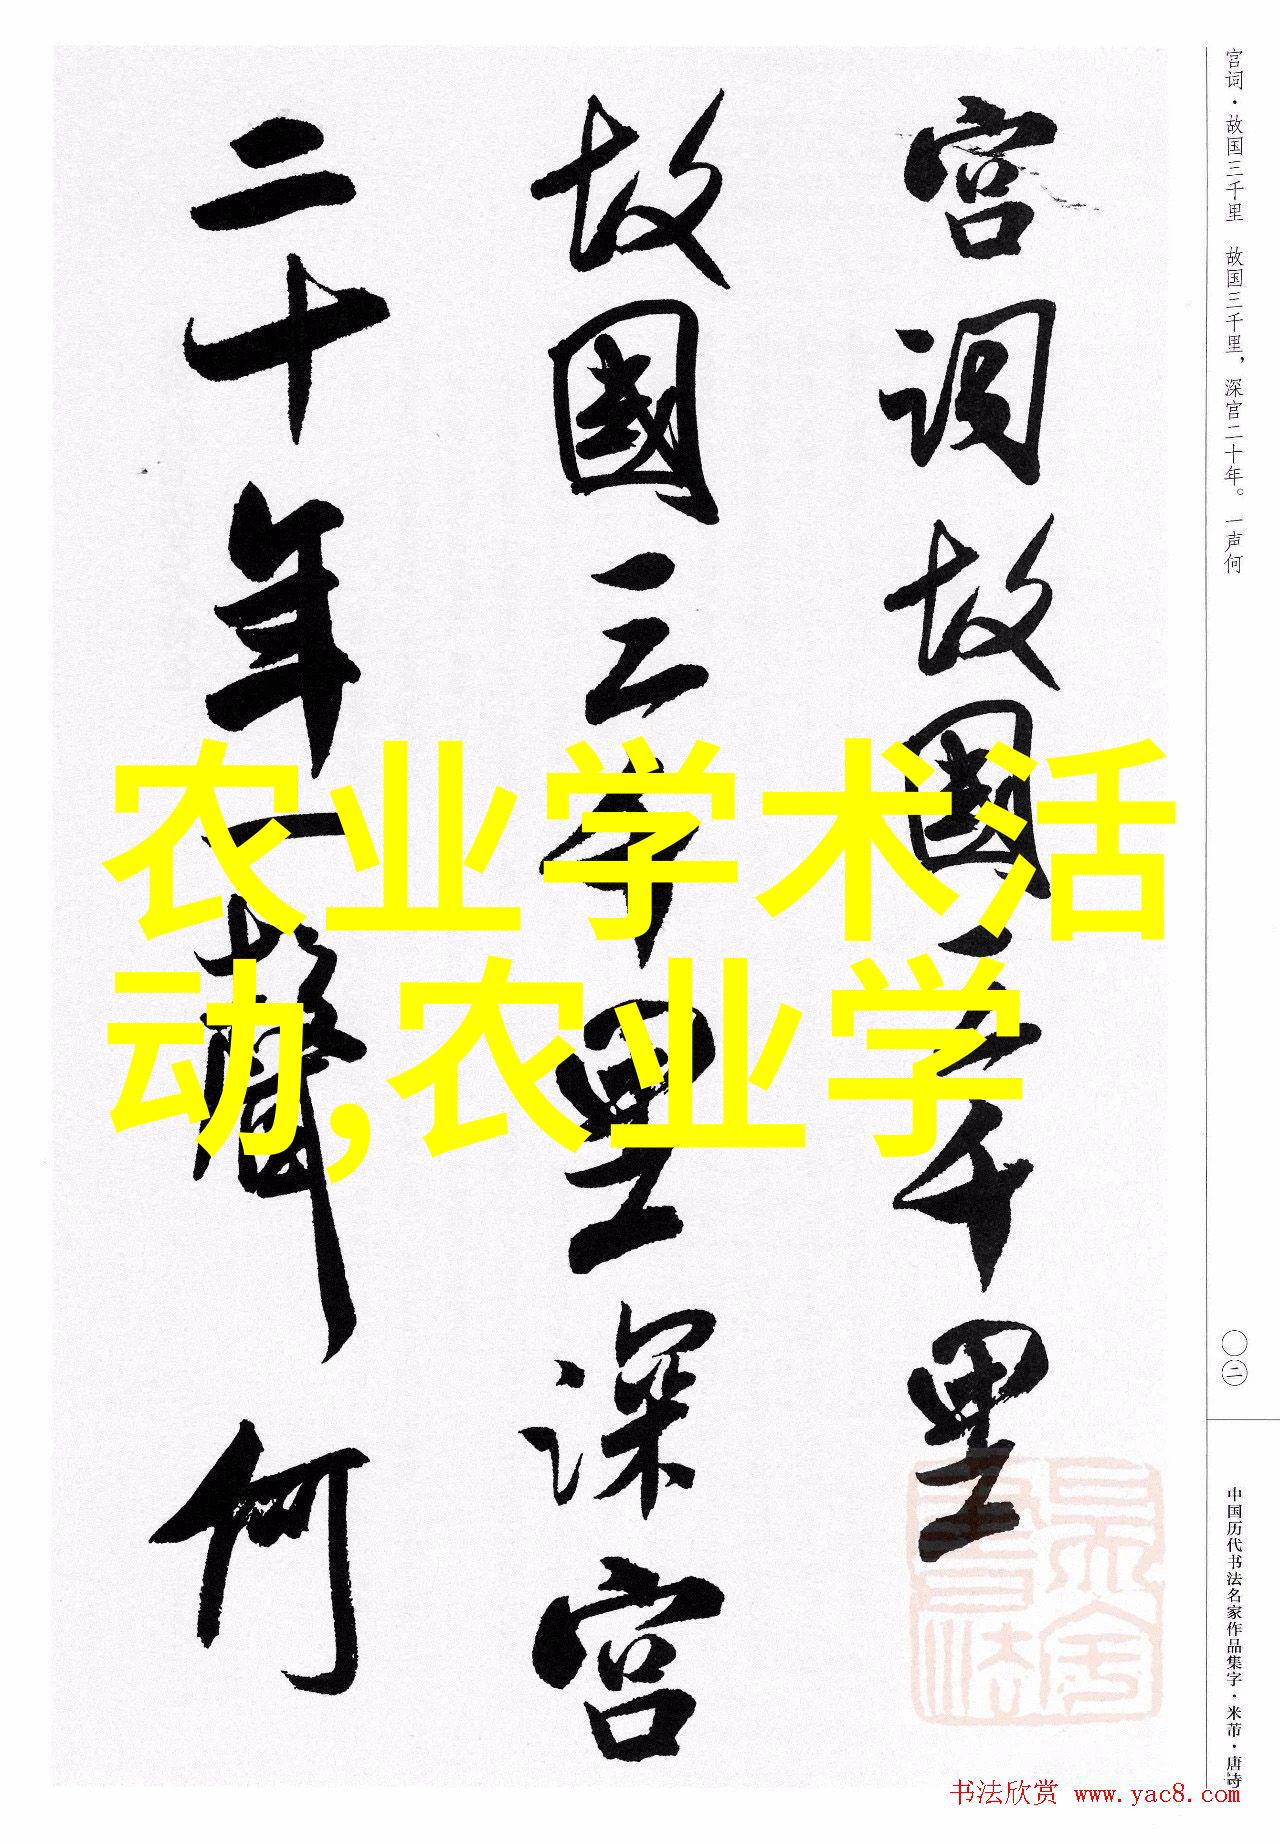 宫词·故国三千里 故国三千里，深宫二十年。一声何
宫词故国三千里
故國三千里深宫
二十年一聲何
农业学术活
动,农业学
〇二
中国历代书法名家作品集字·米芾·唐诗
书法欣赏 www.yac8.com